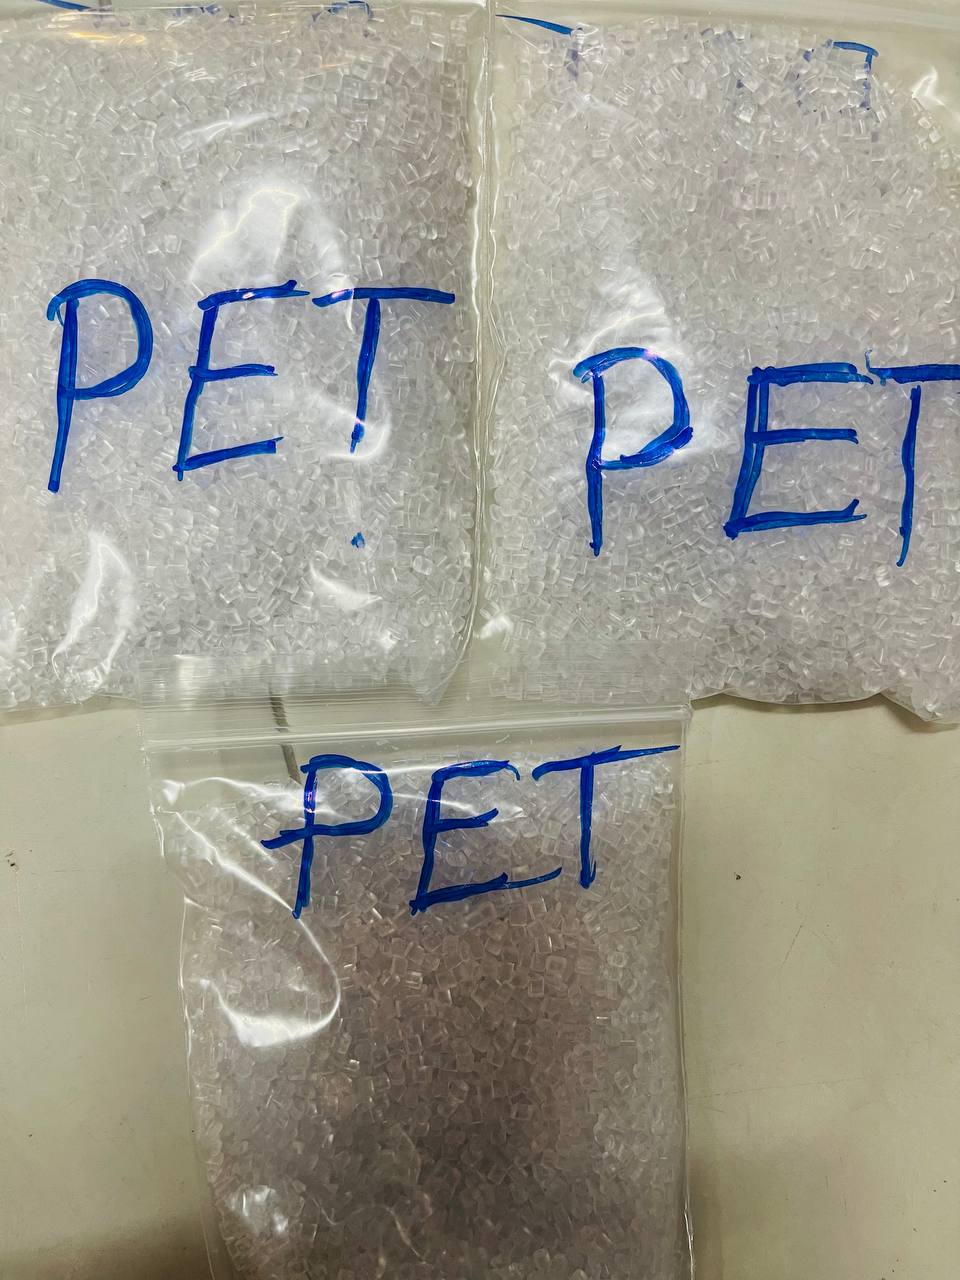 PET
PET
PET